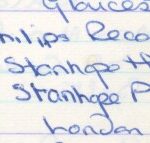 Glouces
hilips Reco
Stanhope H
Stanhope P
London